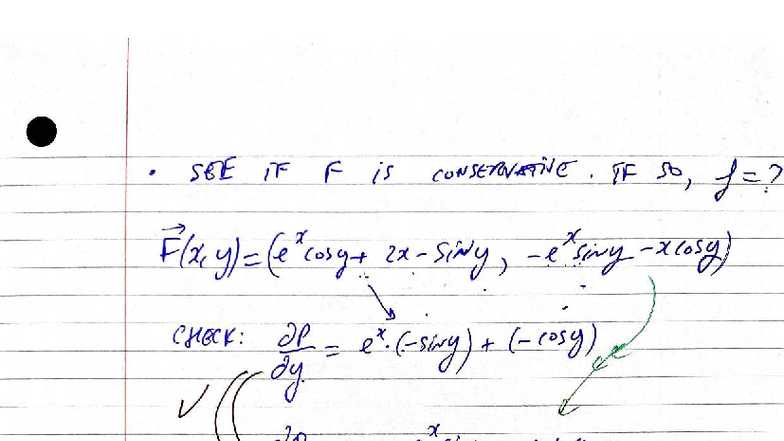 • SEE IF F IS CONSERVATIVE. IF SO, f=?
F⃗(x,y)=(e^x cosy+ 2x-siny, -e^x siny -xcosy)
CHECK: ∂P/∂y = e^x·(-siny) + (-cosy)